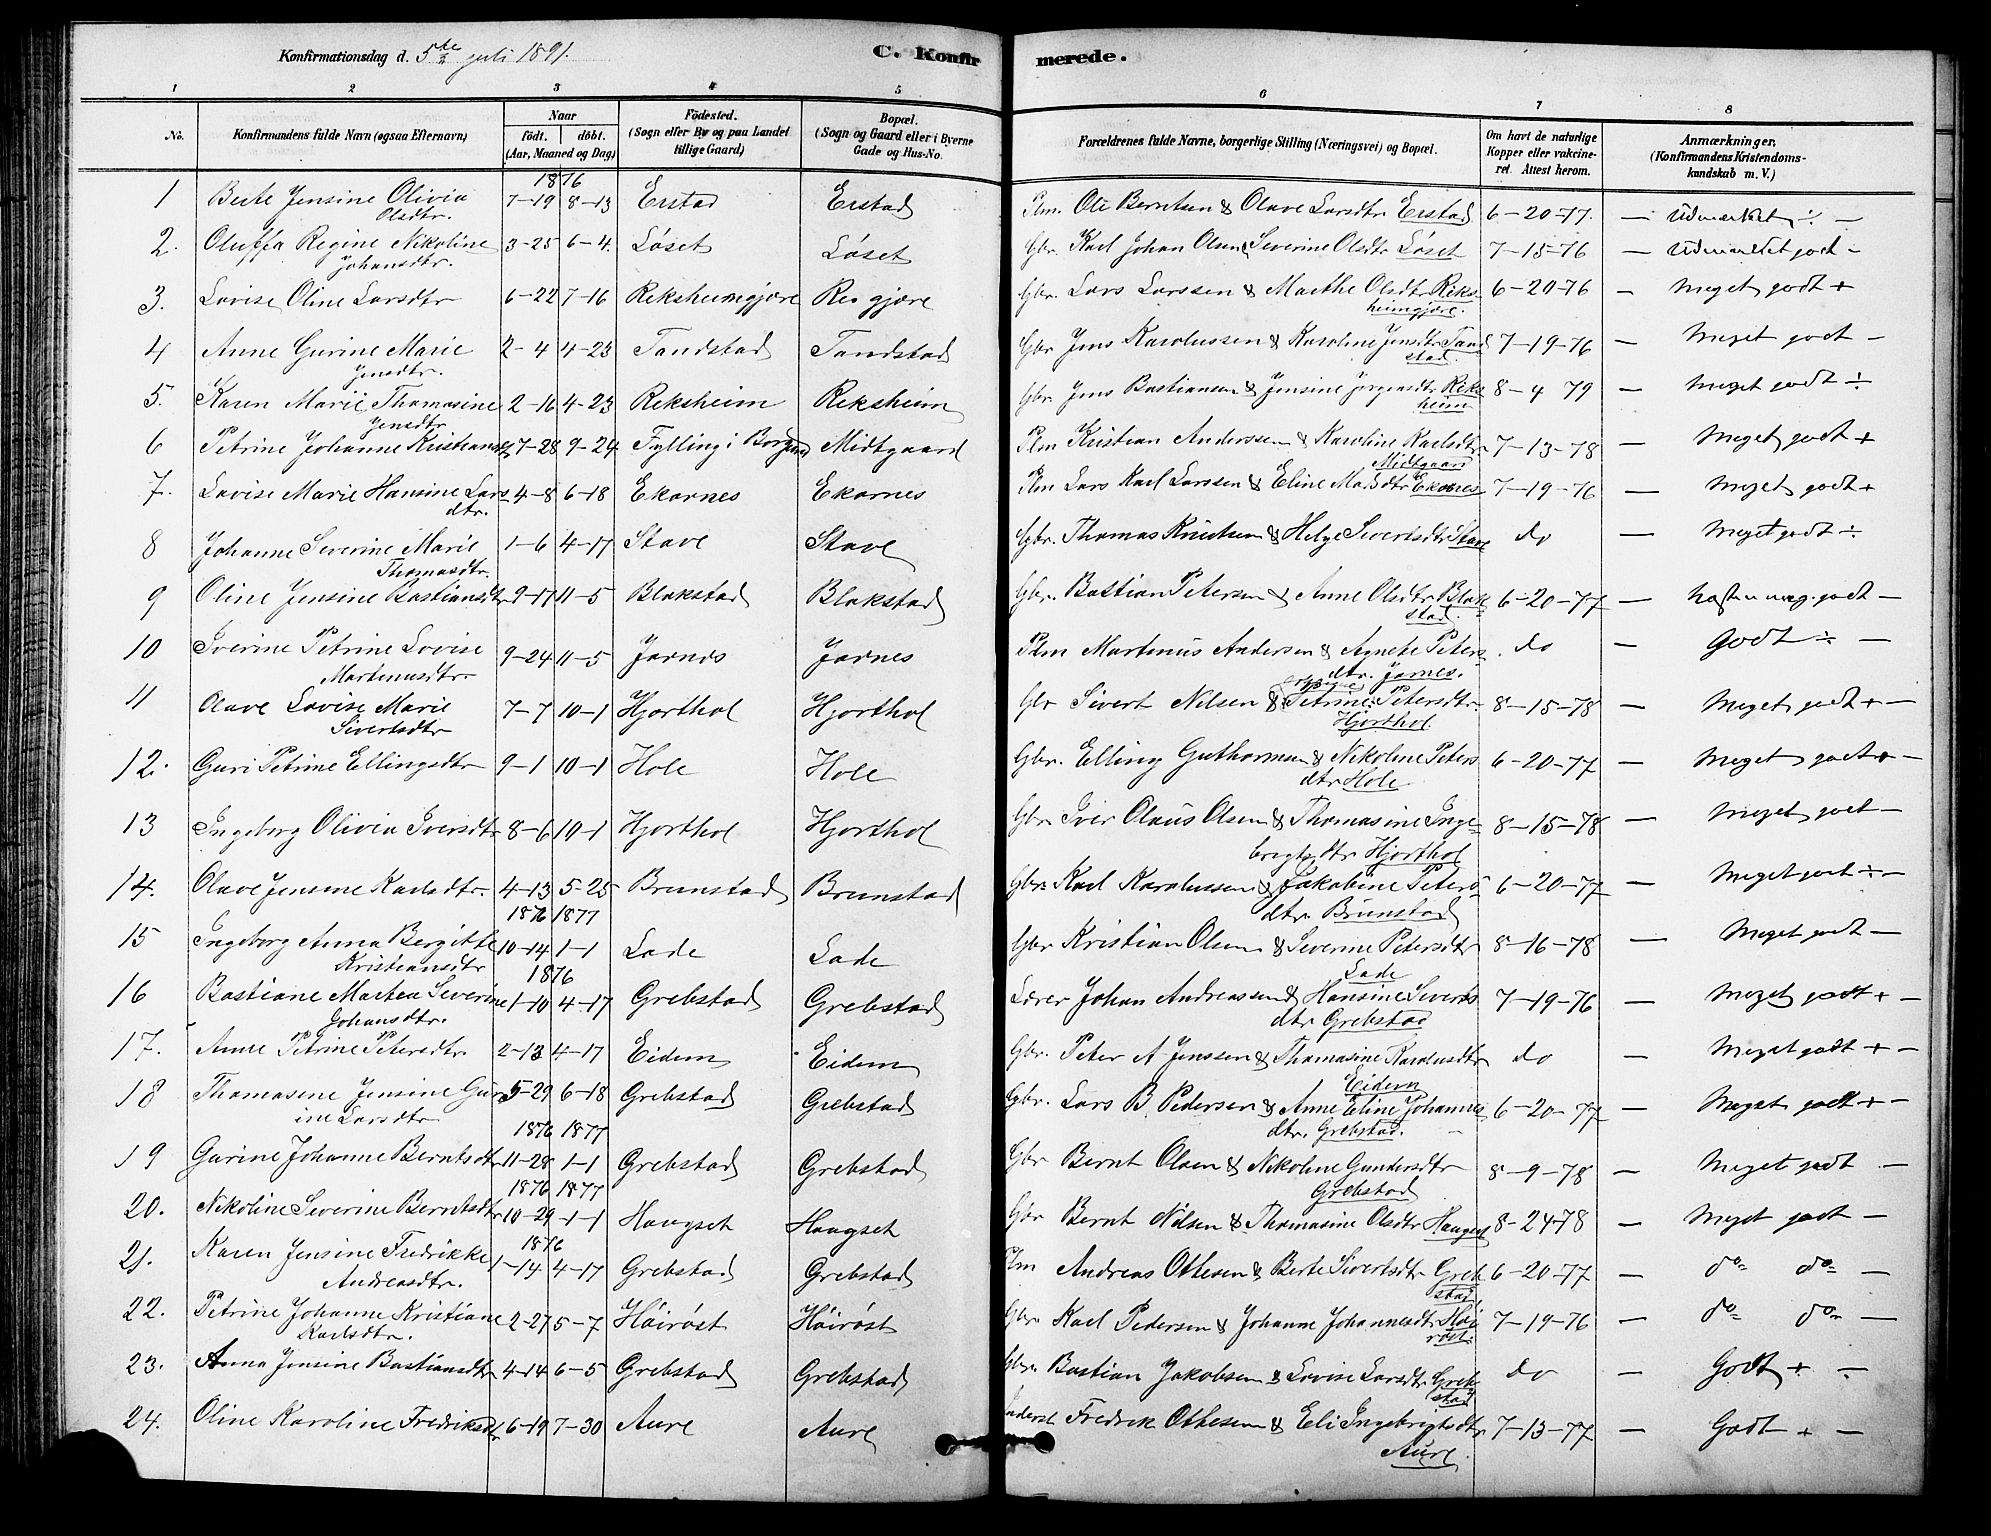 Konfirmationsdag d. 5te juli 1891.
C. Konfirmerede.
1 2 3 4 5 6 7 8
No. Konfirmandens fulde Navn (ogsaa Efternavn)
Naar födt. döbt. (Aar, Maaned og Dag)
Födested. (Sogn eller By og paa Landet tillige Gaard)
Bopæl. (Sogn og Gaard eller i Byerne Gade og Hus-No.
Forældrenes fulde Navne, borgerlige Stilling (Næringsvei) og Bopæl.
Om havt de naturlige Kopper eller vakcineret. Attest herom.
Anmærkninger, (Konfirmandens Kristendomskundskab m. V.)
1876
1 Berte Jensine Olivia Olsdtr. 7-19 8-13 Erstad Erstad Plm. Ole Berntsen & Olave Larsdtr Erstad 6-20-77. — Udmærket ÷ —
2. Oluffa Regine Nikoline Johansdtr. 3-25 6-4 Løset Løset Gbr. Karl Johan Olsen & Severine Olsdtr Løset 7-15-76 — Udmærket godt -
3. Lovise Oline Larsdtr 6-22 7-16 Reksheimgjære Rei gjære Gbr. Lars Larssen & Marthe Olsdtr Reksheimgjære. 6-20-76 — Meget godt +
4 Anne Gurine Marie Jensdtr. 2-4 4-23 Tandstad Tandstad Gbr Jens Karolussen & Karoline Jensdtr Tandstad. 7-19-76 — Meget godt -
5. Karen Marie Thomasine Jensdtr 2-16 4-23 Reksheim Reksheim Gbr. Jens Bastiansen & Jensine Jørgensdtr Reksheim 8-4 79 — Meget godt ÷
6 Petrine Johanne Kristiansdtr 7-28 9-24 Fylling i Borgund Midtgaard Plm Kristian Anderssen & Karoline Karlsdtr Midtgaard 7-13-78 — Meget godt +
7. Lovise Marie Hansine Larsdtr. 4-8 6-18 Ekornes Ekornes Plm Lars Karl Larssen & Eline Matsdtr Ekornes 7-19-76 — Meget godt +
8 Johanne Severine Marie Thomasdtr. 1-6 4-17 Stave Stave Gbr. Thomas Knutsen & Helge Sivertsdtr Stave do — Meget godt ÷
9 Oline Jensine Bastiansdtr 9-17 11-5 Blakstad Blakstad Gbr. Bastian Petersen & Anne Olsdtr Blakstad. 6-20-77 — Næsten meg. godt -
10 Iverine Petrine Lovise Martinusdtr. 9-24 11-5 Jarnes Jarnes Plm Martinus Andersen & Agnete Petersdtr. Jarnes. do — Godt ÷ —
11 Olave Lovise Marie Sivertsdtr 7-7 10-1 Hjorthol Hjorthol Gbr Sivert Nilsen & Petrine Petersdtr. Hjorthol 8-15-78 — Meget godt + -
12. Guri Petrine Ellingsdtr 9-1 10-1 Hole Hole Gbr. Elling Guthormsen & Nikoline Petersdtr Hole 6-20-77 — Meget godt + -
13 Ingeborg Olivia Iversdtr 8-6 10-1 Hjorthol Hjorthol Gbr Iver Olaus Olsen & Thomasine Ingebrigtsdtr Hjorthol 8-15-78 — Meget godt -
14. Olave Jensine Karlsdtr. 4-13 5-25 Brunstad Brunstad Gbr. Karl Karolussen & Jakobine Petersdtr. Brunstad 6-20-77 — Meget godt ÷ -
1876 1877
15 Ingeborg Anna Bergitte Kristiansdtr 10-14 1-1 Lade Lade Gbr Kristian Olsen & Severine Petersdtr Lade 8-16-78 — Meget godt -
1876
16 Bastiane Martea Severine Johansdtr. 1-10 4-17 Grebstad Grebstad Lærer Johan Andreassen & Hansine Sivertsdtr Grebstad 7-19-76 — Meget godt + -
17. Anne Petrine Petersdtr. 2-13 4-17 Eidem Eidem Gbr. Peter A Jenssen & Thomasine Karolusdtr Eidem do — Meget godt + -
18 Thomasine Jensine Gurine Larsdtr 5-29 6-18 Grebstad Grebstad Gbr. Lars B. Pedersen & Anne Eline Johannesdtr. Grebstad. 6-20-77 — Meget godt + -
1876 1877
19 Gurine Johanne Berntsdtr 11-28 1-1 Grebstad Grebstad Gbr Bernt Olsen & Nikoline Gundersdtr Grebstad 8-9-78 — Meget godt -
1876 1877
20. Nikoline Severine Berntsdtr 10-29 1-1 Haugset Haugset Gbr Bernt Nilsen & Thomasine Olsdtr Haugset 8-24-78 — Meget godt -
1876
21. Karen Jensine Fredrikke Andreasdtr. 1-14 4-17 Grebstad Grebstad Plm Andreas Ottesen & Berte Sivertsdtr Grebstad 6-20-77 — do do —
22. Petrine Johanne Kristiane Karlsdtr. 2-27 5-7 Höiröst Höiröst Gbr Karl Pedersen & Johanne Johannesdtr Höiröst. 7-19-76 — do do —
23. Anna Jensine Bastiansdtr 4-14 6-5 Grebstad Grebstad Gbr. Bastian Jakobsen & Lovise Larsdtr Grebstad do — Godt + -
24. Oline Karoline Fredriksdtr 6-19 7-30 Aure Aure Inderst Fredrik Ottesen & Eli Ingebrigtsdtr Aure. 7-13-77 — Godt + —